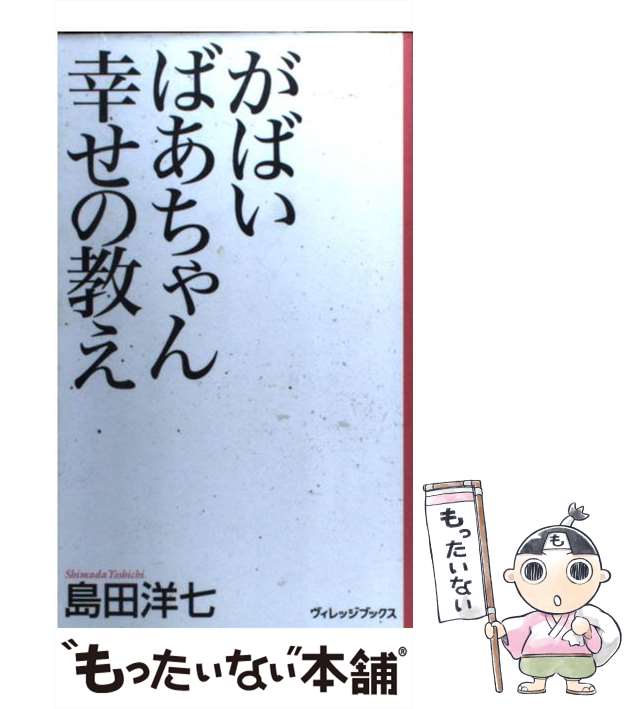 がばい
ばあちゃん
幸せの教え
Shimada Yoshichi
島田洋七
ヴィレッジブックス
"もったいない"本舗®
もったいない
も